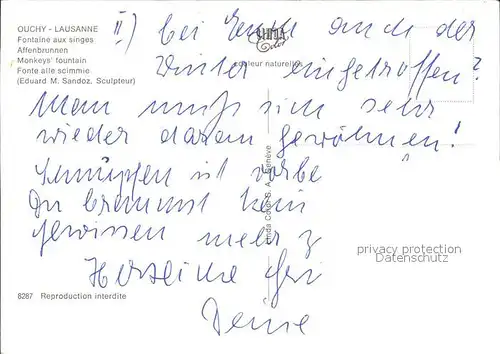 OUCHY - LAUSANNE
Fontaine aux singes
Affenbrunnen
Monkeys' fountain
Fonte alle scimmie
(Eduard M. Sandoz, Sculpteur)
II) bei Euch auch der
Winter eingetroffen?
Man muß sich sehr
wieder daran gewöhnen!
Schnupfen ist vorbei
Du kommst kein
mehr
Herzliche
Deine
couleur naturelles
S. A. Genève
8287 Reproduction interdite
privacy protection
Datenschutz